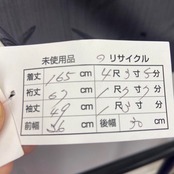 未使用品 ⑦リサイクル
着丈 165 cm 4尺3寸5分
裄丈 67 cm 1尺 寸 分
袖丈 49 cm 1尺3寸 分
前幅 cm 後幅 30 cm